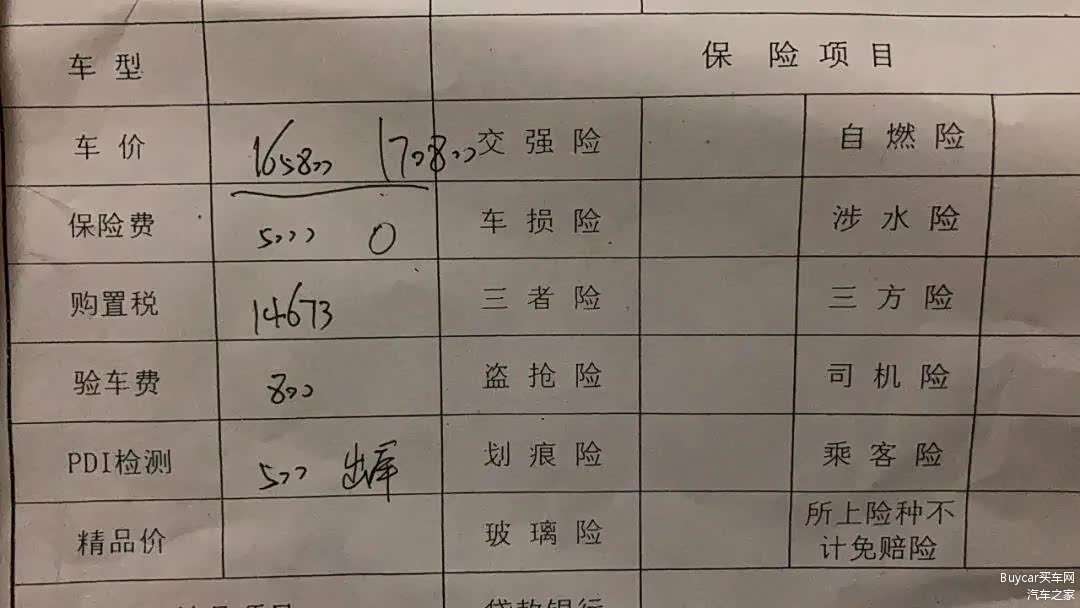 车型 保险项目
车价 165800 170800 交强险 自燃险
保险费 5000 0 车损险 涉水险
购置税 14673 三者险 三方险
验车费 800 盗抢险 司机险
PDI检测 500 出库 划痕险 乘客险
精品价 玻璃险 所上险种不
计免赔险
贷款银行
Buycar买车网
汽车之家